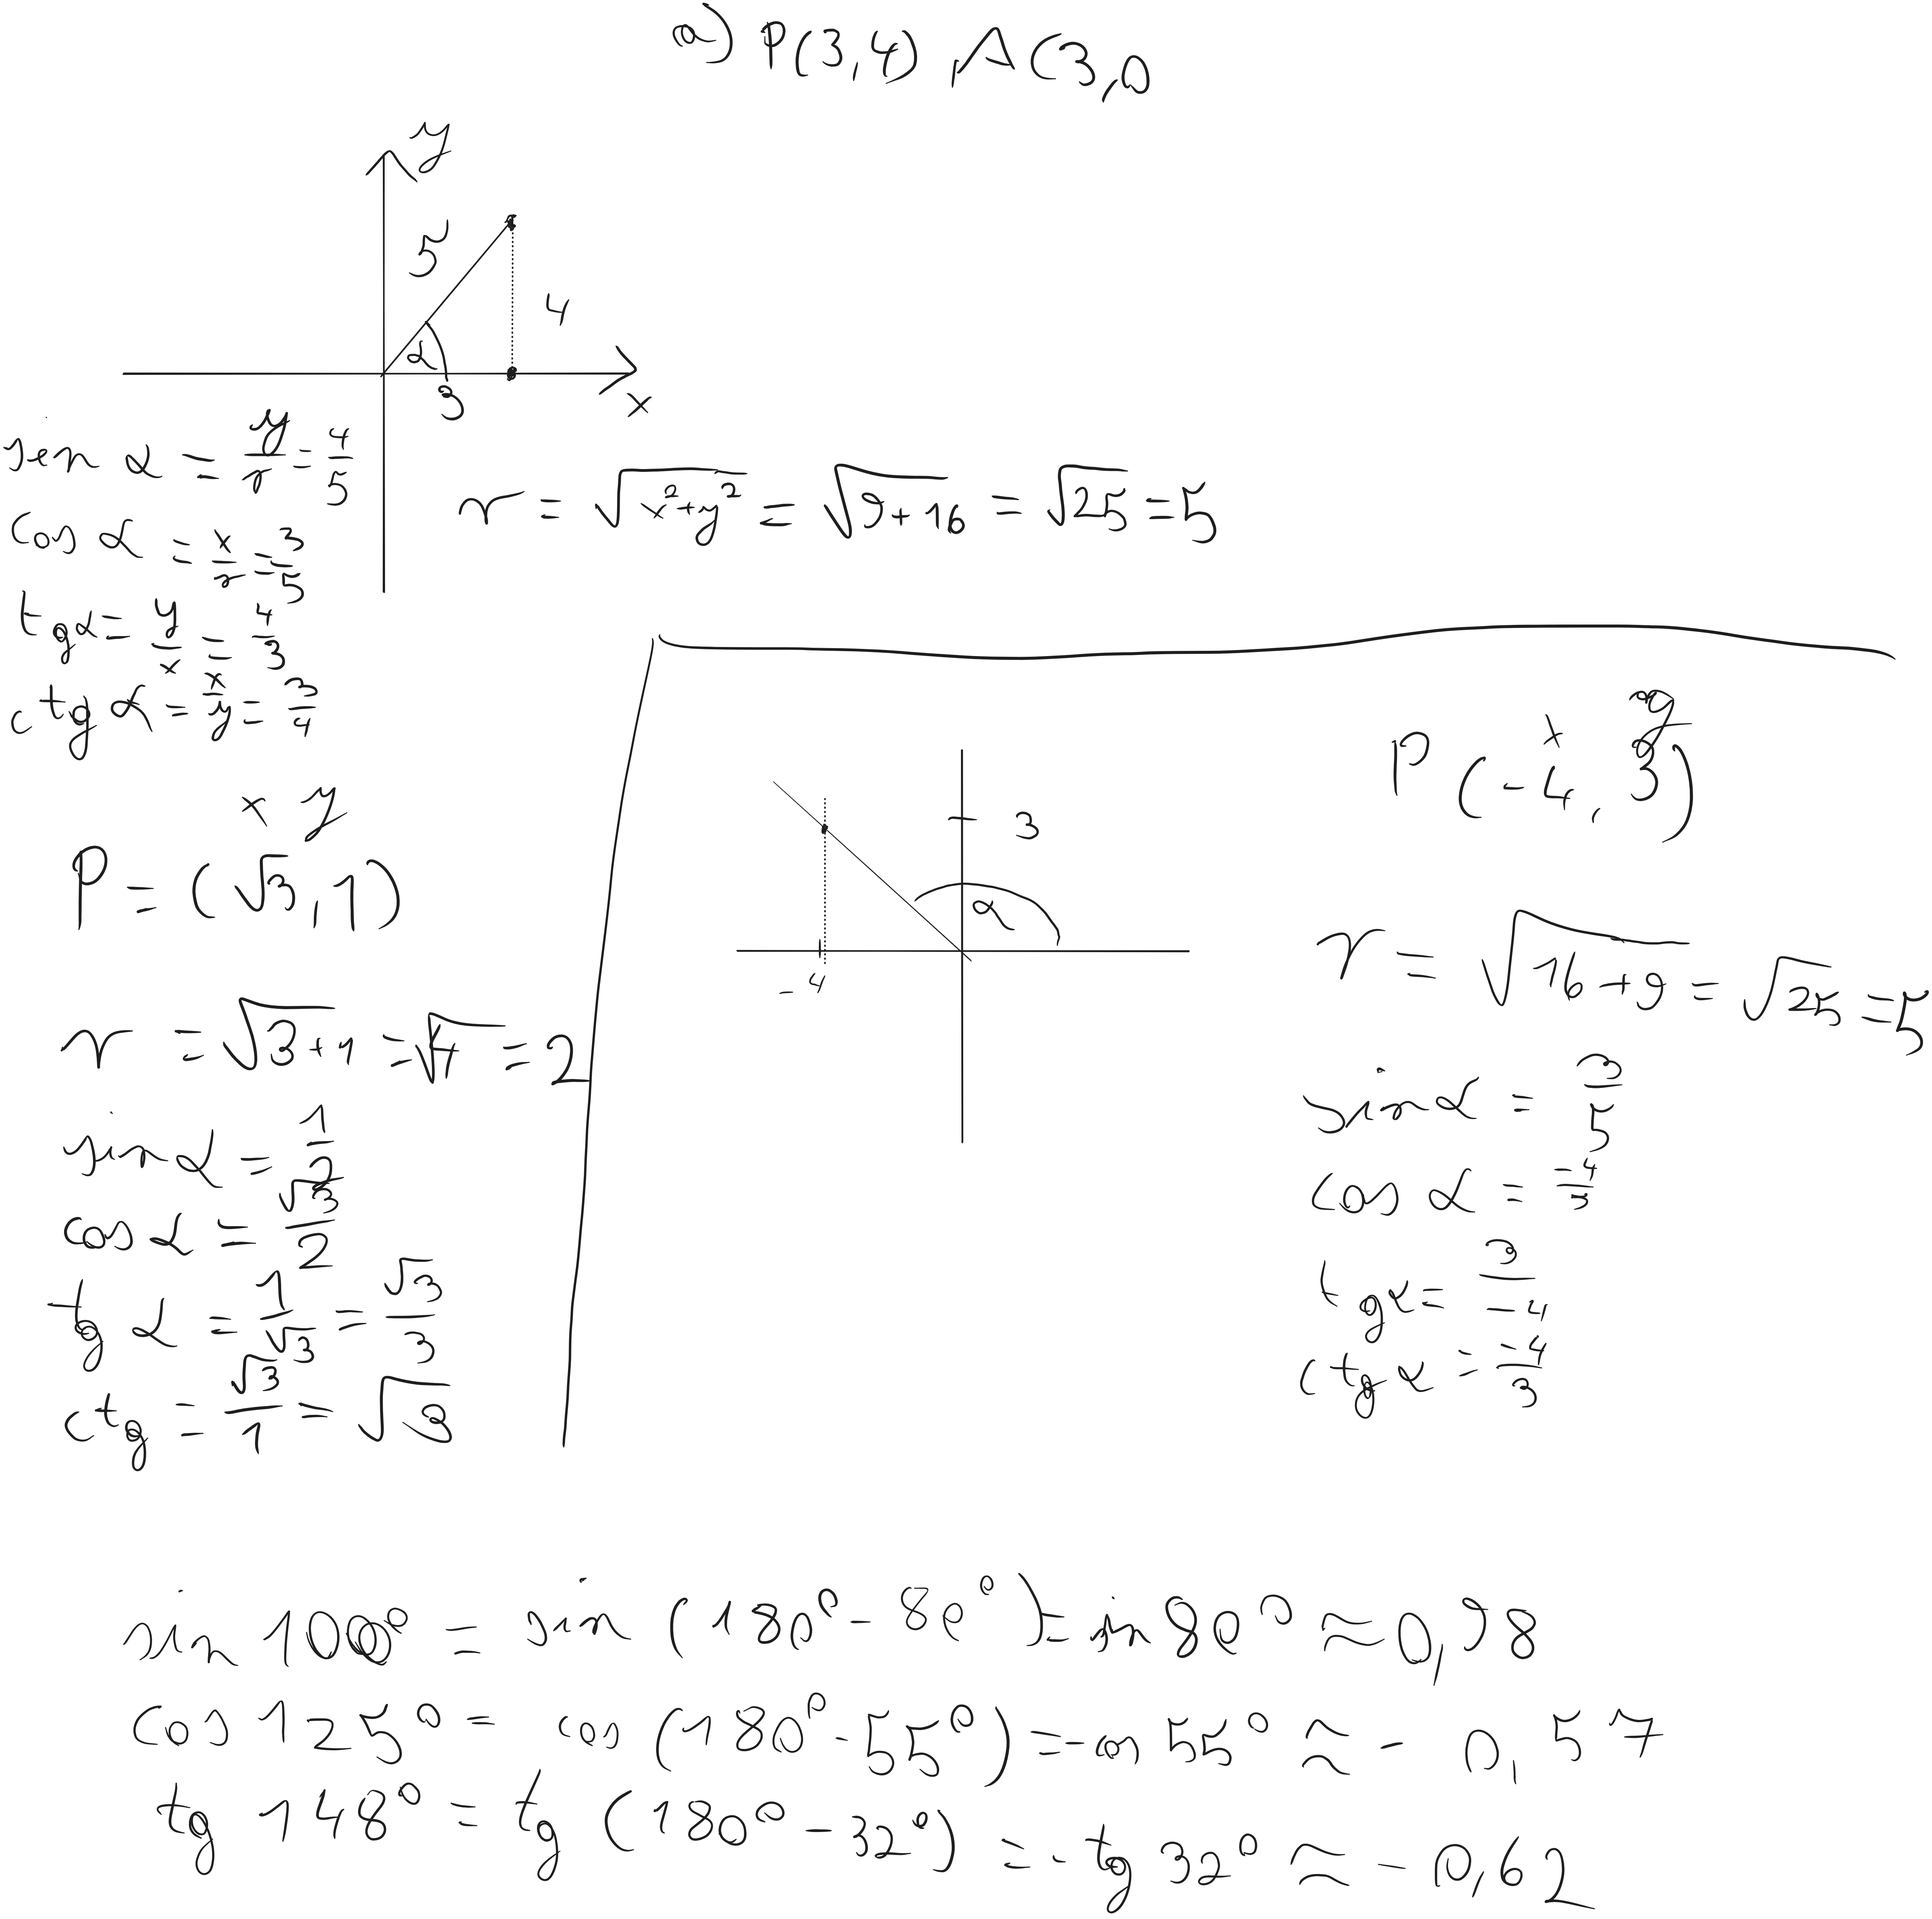 a) P(3,4) A(3,0
y
5
4
α
3
x
sin α = y/r = 4/5
cos α = x/r = 3/5
tg α = y/x = 4/3
ctg α = x/y = 3/4
r = √x²+y² = √9+16 = √25 = 5
x y
P = (√3, 1)
r = √3+1 = √4 = 2
sin α = 1/2
cos α = √3/2
tg α = 1/√3 = √3/3
ctg = √3/1 = √3
3
α
-4
x y
P(-4, 3)
r = √16+9 = √25 = 5
sin α = 3/5
cos α = -4/5
tg α = 3/-4
ctg α = -4/3
sin 100° = sin (180° - 80°) = sin 80° ≈ 0,98
cos 125° = cos (180° - 55°) = - cos 55° ≈ - 0,57
tg 148° = tg (180° - 32°) = - tg 32° ≈ - 0,62